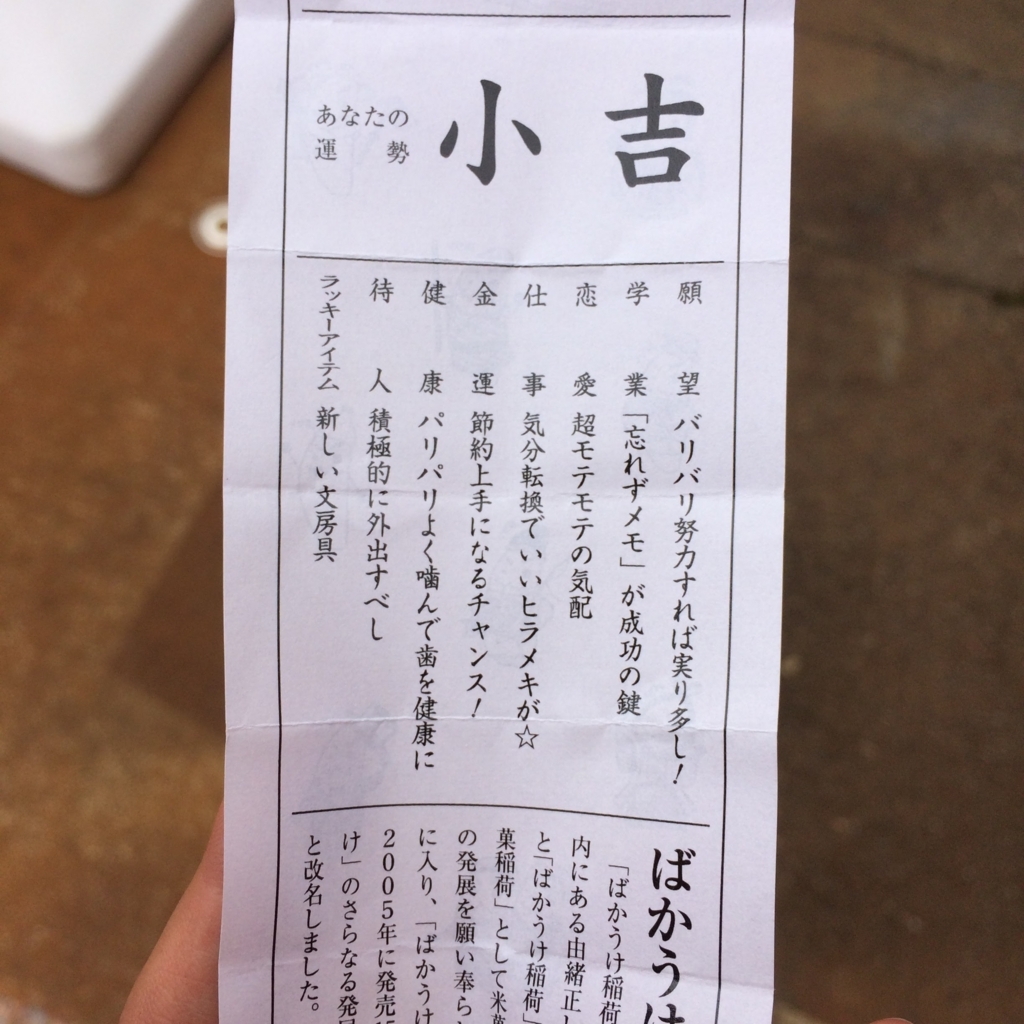 あなたの
運勢
小吉
願望 バリバリ努力すれば実り多し！
学業 「忘れずメモ」が成功の鍵
恋愛 超モテモテの気配
仕事 気分転換でいいヒラメキが☆
金運 節約上手になるチャンス！
健康 パリパリよく噛んで歯を健康に
待人 積極的に外出すべし
ラッキーアイテム 新しい文房具
ばかうけ
「ばかうけ稲荷
内にある由緒正し
と「ばかうけ稲荷」
菓稲荷」として米菓
の発展を願い奉ら
に入り、「ばかうけ
2005年に発売
け」のさらなる発展
と改名しました。